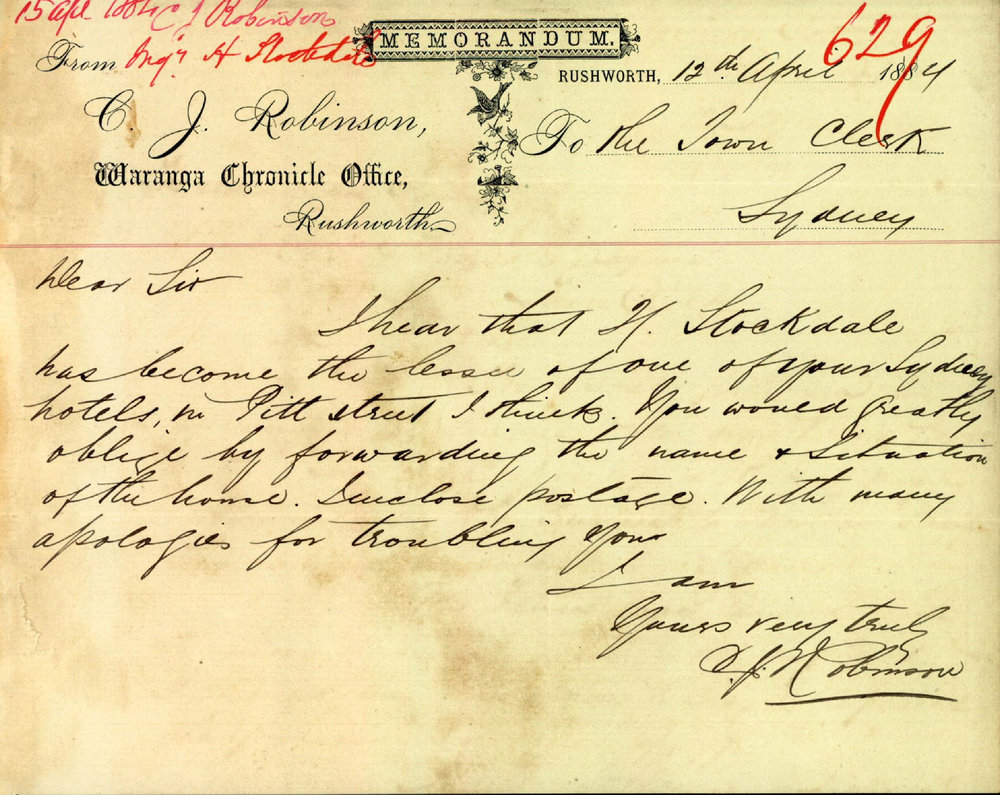 15 Apl 1884 C J Robinson
MEMORANDUM.
629
From Inqy H Stockdale
RUSHWORTH, 12th April 1884
C. J. Robinson,
To the Town Clerk
Waranga Chronicle Office,
Sydney
Rushworth
Dear Sir
I hear that H. Stockdale
has become the lessee of one of your Sydney
hotels, in Pitt street I think. You would greatly
oblige by forwarding the name & situation
of the house. I enclose postage. With many
apologies for troubling you
I am
Yours very truly
C. J. Robinson